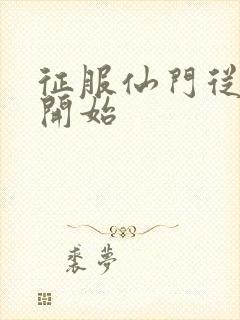 征服仙門從
開始
裘夢